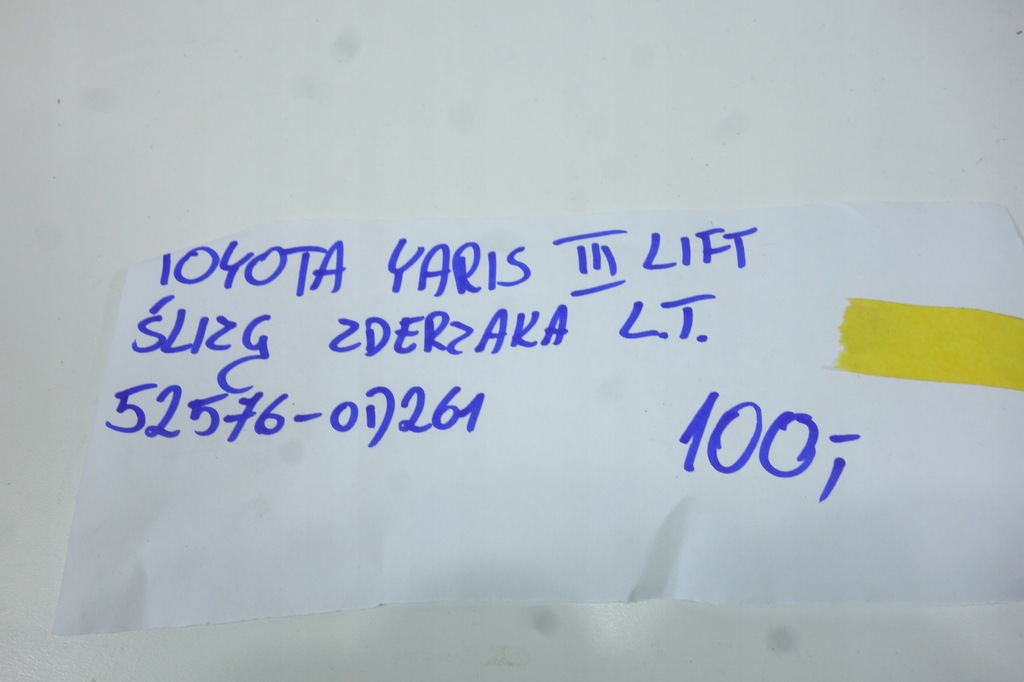 TOYOTA YARIS III LIFT
ŚLIZG ZDERZAKA L.T.
52576-0D261
100,-